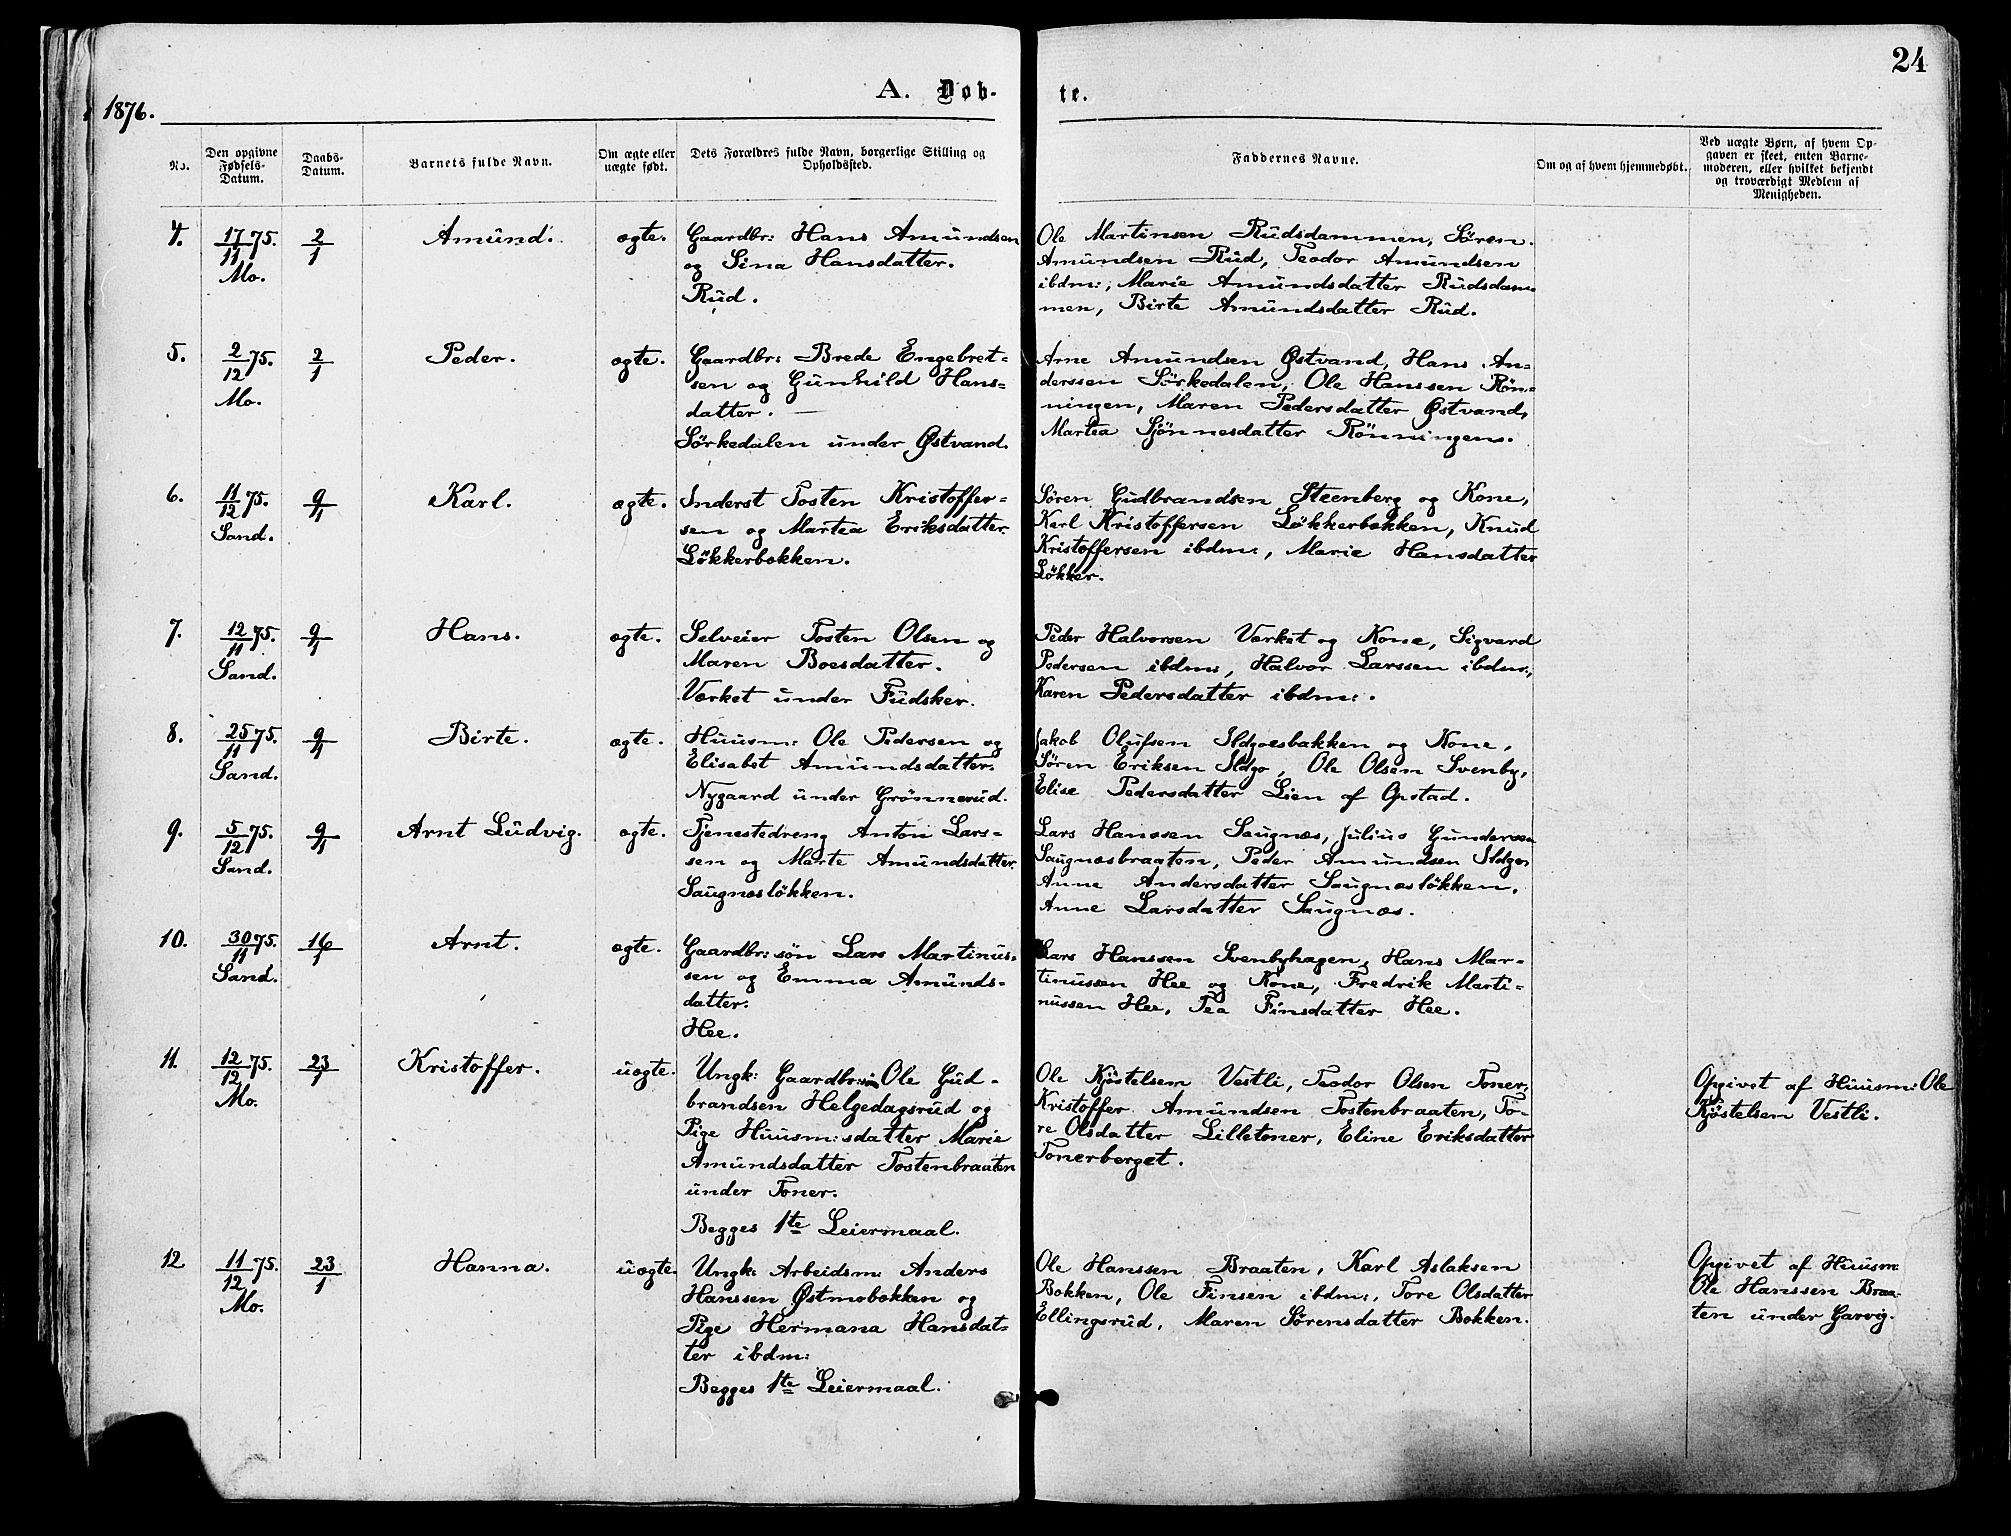 24
A. Døb-
te.
1876.
No.
Den opgivne
Fødsels-
Datum.
Daabs-
Datum.
Barnets fulde Navn.
Om ægte eller
uægte født.
Dets Forældres fulde Navn, borgerlige Stilling og
Opholdssted.
Faddernes Navne.
Om og af hvem hjemmedøbt.
Ved uægte Børn, af hvem Op-
gaven er skeet, enten Barne-
moderen, eller hvilket bekjendt
og troværdigt Medlem af
Menigheden.
4. 17/11 75. 2/1 Amund. ægte.
Mo.
Gaardbr: Hans Amundsen
og Sina Hansdatter.
Rud.
Ole Martinsen Rudsdammen, Søren
Amundsen Rud, Teodor Amundsen
ibdm:, Marie Amundsdatter Rudsdam-
men, Birte Amundsdatter Rud.
5. 2/12 75. 2/1 Peder. ægte.
Mo.
Gaardbr: Brede Engebret-
sen og Gunhild Hans-
datter. —
Sørkedalen under Østvand.
Arne Amundsen Østvand, Hans An-
derssen Sørkedalen, Ole Hanssen Røn-
ningen, Maren Pedersdatter Østvand,
Martea Sjønnesdatter Rønningens.
6. 11/12 75. 9/1 Karl. ægte.
Sand.
Inderst Tosten Kristoffer-
sen og Martea Eriksdatter.
Løkkerbækken.
Søren Gudbrandsen Steenberg og Kone,
Karl Kristoffersen Løkkerbækken, Knud
Kristoffersen ibdm:, Marie Hansdatter
Løkker.
7. 12/11 75. 9/1 Hans. ægte.
Sand.
Selveier Tosten Olsen og
Maren Boesdatter.
Værket under Fudsker.
Peder Halvorsen Værket og Kone, Sigvard
Pedersen ibdm:, Halvor Larssen ibdm:,
Karen Pedersdatter ibdm:.
8. 25/11 75. 9/1 Birte. ægte.
Sand.
Huusm: Ole Pedersen og
Elisabet Amundsdatter.
Nygaard under Grønnerud.
Jakob Olufsen Ildjoesbakken og Kone,
Søren Eriksen Ildjo, Ole Olsen Svenby,
Elise Pedersdatter Lien af Opstad.
9. 5/12 75. 9/1 Arnt Ludvig. ægte.
Sand.
Tjenestedreng Anton Lars-
sen og Marte Amundsdatter.
Saugnæsløkken.
Lars Hanssen Saugnæs, Julius Gundersen
Saugnæsbraaten, Peder Amundsen Ildjo,
Anne Andersdatter Saugnæsløkken,
Anne Larsdatter Saugnæs.
10. 30/11 75. 16/1 Arnt. ægte.
Sand.
Gaardbr: søn Lars Martinus-
sen og Emma Amunds-
datter.
Hee.
Lars Hanssen Svenbyhagen, Hans Mar-
tinussen Hee og Kone, Fredrik Marti-
nussen Hee, Tea Finsdatter Hee.
11. 12/12 75. 23/1 Kristoffer. uægte.
Mo.
Ungk: Gaardbr: Ole Gud-
brandsen Helgedagsrud og
Pige Huusm:sdatter Marie
Amundsdatter Tostenbraaten
under Toner.
Begges 1te Leiermaal.
Ole Kjøstelsen Vestli, Teodor Olsen Toner,
Kristoffer Amundsen Tostenbraaten, To-
re Olsdatter Lilletoner, Eline Eriksdatter
Tonerberget.
Opgivet af Huusm: Ole
Kjøstelsen Vestli.
12 11/12 75. 23/1 Hanna. uægte.
Mo.
Ungk: Arbeidsm: Anders
Hanssen Østmobækken og
Pige Hermana Hansdat-
ter ibdm:
Begges 1te Leiermaal.
Ole Hanssen Braaten, Karl Aslaksen
Bækken, Ole Finsen ibdm:, Tore Olsdatter
Ellingsrud, Maren Sørensdatter Bækken.
Opgivet af Huusm:
Ole Hanssen Braa-
ten under Garvig.